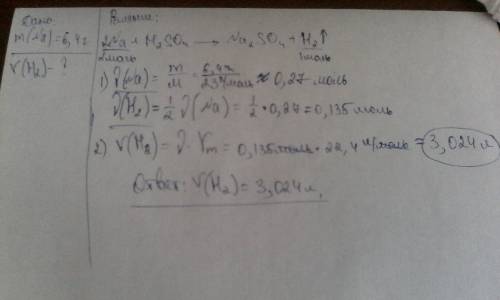 Дано:
m(Na)=6,4г
V(H₂)-?
Решение:
2Na + H₂SO₄ → Na₂SO₄ + H₂↑
2моль 1моль
1) ν(Na) = m/M = 6,4г/23г/моль ≈ 0,27 моль
ν(H₂) = 1/2 ν(Na) = 1/2 · 0,27 = 0,135 моль
2) V(H₂) = ν · Vm = 0,135моль · 22,4 л/моль = 3,024 л
Ответ: V(H₂) = 3,024 л.